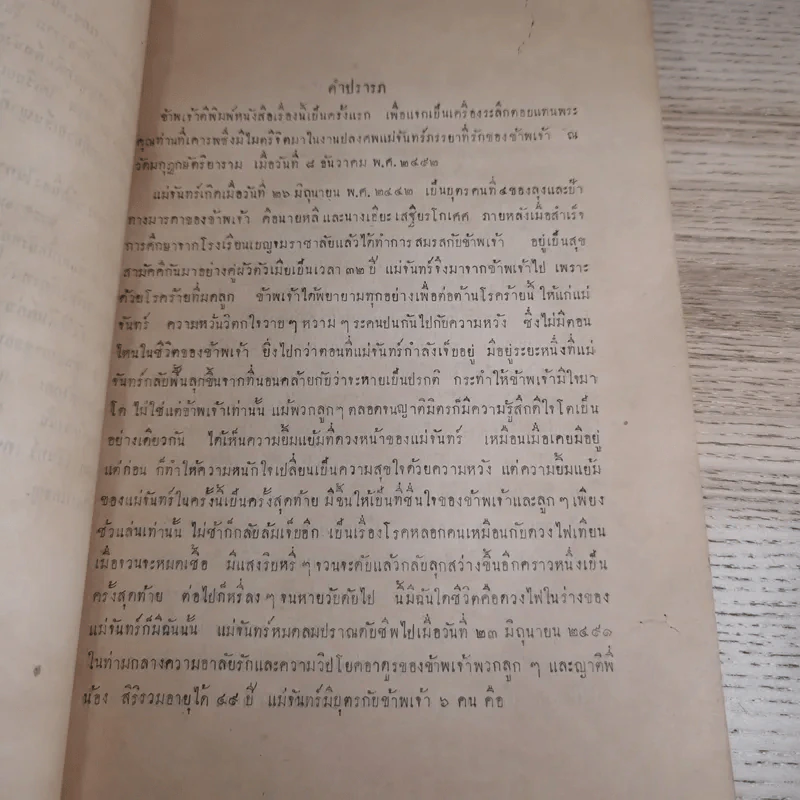 คำปรารภ
ข้าพเจ้าตีพิมพ์หนังสือเรื่องนี้เป็นครั้งแรก เพื่อแจกเป็นเครื่องระลึกตอบแทนพระ
คุณท่านที่เคารพซึ่งมีไมตรีจิตมาในงานปลงศพแม่จันทร์ภรรยาที่รักของข้าพเจ้า ณ
วัดมกุฏกษัตริยาราม เมื่อวันที่ ๘ ธันวาคม พ.ศ. ๒๔๙๒
แม่จันทร์เกิดเมื่อวันที่ ๒๖ มิถุนายน พ.ศ. ๒๔๔๒ เป็นบุตรคนที่ ๔ ของลุงและป้า
ทางมารดาของข้าพเจ้า คือนายหลี และนางเฮียะ เสฐียรโกเศศ ภายหลังเมื่อสำเร็จ
การศึกษาจากโรงเรียนเบญจมราชาลัยแล้วได้ทำการสมรสกับข้าพเจ้า อยู่เป็นสุข
สามัคคีกันมาอย่างคู่ผัวตัวเมียเป็นเวลา ๓๒ ปี แม่จันทร์จึงมาจากข้าพเจ้าไป เพราะ
ด้วยโรคร้ายที่มดลูก ข้าพเจ้าได้พยายามทุกอย่างเพื่อต่อต้านโรคร้ายนี้ ให้แก่แม่
จันทร์ ความหวั่นวิตกใจวาย ๆ หวาม ๆ ระคนปนกันไปกับความหวัง ซึ่งไม่มีตอน
ไหนในชีวิตของข้าพเจ้า ยิ่งไปกว่าตอนที่แม่จันทร์กำลังเจ็บอยู่ มีอยู่ระยะหนึ่งที่แม่
จันทร์กลับฟื้นลุกขึ้นจากที่นอนคล้ายกับว่าจะหายเป็นปรกติ กระทำให้ข้าพเจ้ามีใจมา
โต ไม่ใช่แต่ข้าพเจ้าเท่านั้น แม้พวกลูก ๆ ตลอดจนญาติมิตรก็มีความรู้สึกดีใจโตเป็น
อย่างเดียวกัน ได้เห็นความยิ้มแย้มที่ดวงหน้าของแม่จันทร์ เหมือนเมื่อเคยมีอยู่
แต่ก่อน ก็ทำให้ความหนักใจเปลี่ยนเป็นความสุขใจด้วยความหวัง แต่ความยิ้มแย้ม
ของแม่จันทร์ในครั้งนี้เป็นครั้งสุดท้าย มีขึ้นให้เป็นที่ชื่นใจของข้าพเจ้าและลูก ๆ เพียง
ชั่วแล่นเท่านั้น ไม่ช้าก็กลับล้มเจ็บอีก เป็นเรื่องโรคหลอกคนเหมือนกับดวงไฟเทียน
เมื่อจวนจะหมดเชื้อ มีแสงริบหรี่ ๆ จวนจะดับแล้วกลับลุกสว่างขึ้นอีกคราวหนึ่งเป็น
ครั้งสุดท้าย ต่อไปก็หรี่ลง ๆ จนหายวับดับไป นี้มีฉันใดชีวิตคือดวงไฟในร่างของ
แม่จันทร์ก็มีฉันนั้น แม่จันทร์หมดลมปราณดับชีพไปเมื่อวันที่ ๒๓ มิถุนายน ๒๔๙๑
ในท่ามกลางความอาลัยรักและความวิปโยคอาดูรของข้าพเจ้าพวกลูก ๆ และญาติพี่
น้อง สิริรวมอายุได้ ๔๙ ปี แม่จันทร์มีบุตรกับข้าพเจ้า ๖ คน คือ